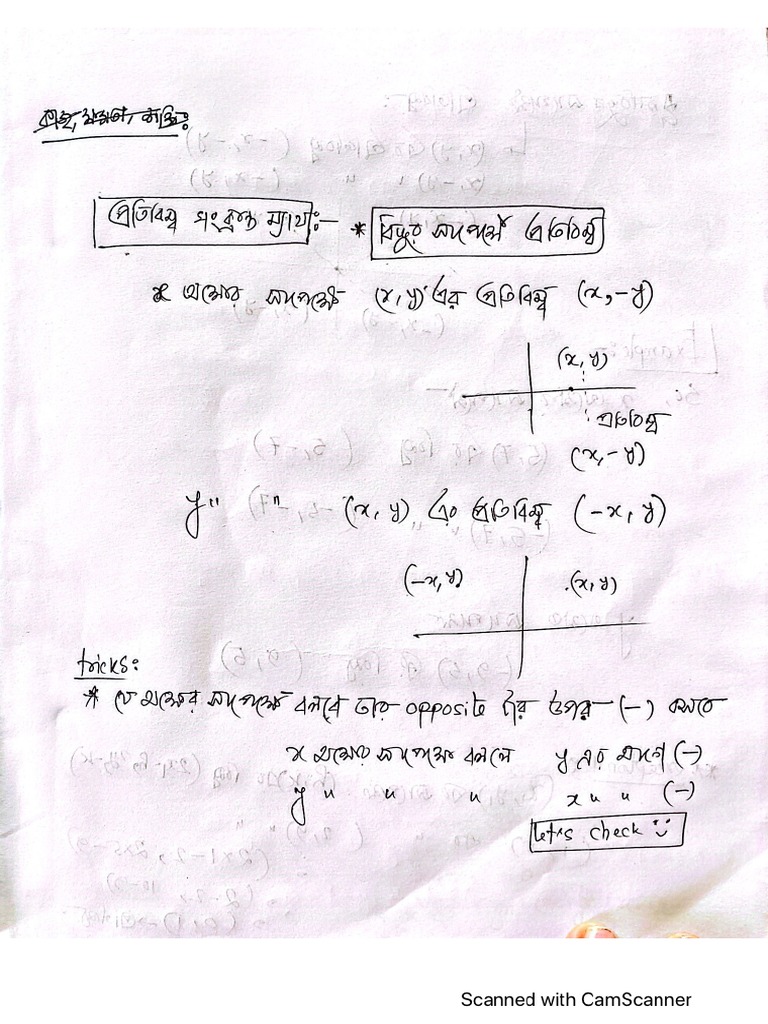 প্রতিবিম্ব সংক্রান্ত ম্যাথ:- * বিন্দুর সাপেক্ষে প্রতিবিম্ব
x অক্ষের সাপেক্ষে (x, y) এর প্রতিবিম্ব (x, -y)
(x, y)
প্রতিবিম্ব
(x, -y)
y " " (x, y) এর প্রতিবিম্ব (-x, y)
(-x, y) (x, y)
tricks:
* যে অক্ষের সাপেক্ষে বলবে তার opposite টার উপর (-) বসবে
x অক্ষের সাপেক্ষে বললে y এর আগে (-)
y " " " x " " (-)
let's check
Scanned with CamScanner